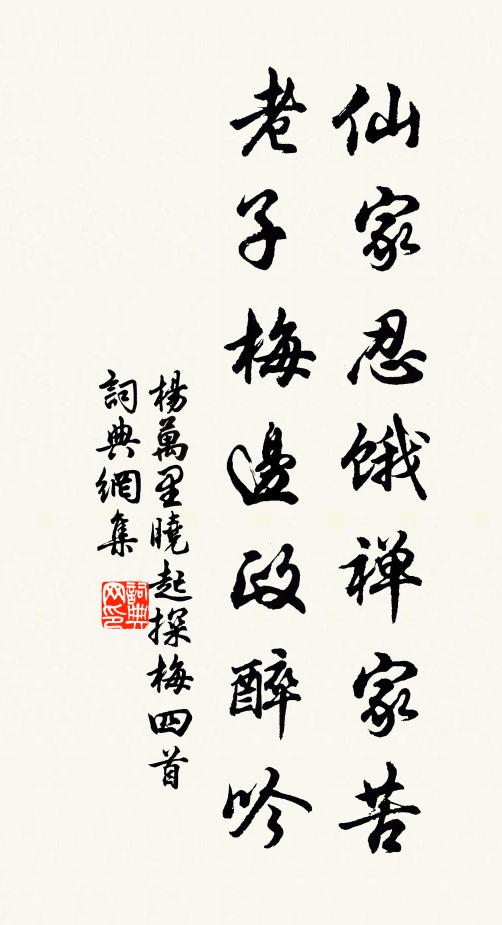 仙家忍饿禅家苦
老子梅邊政醉吟
楊萬里曉起探梅四首
詞典網集
詞典网印